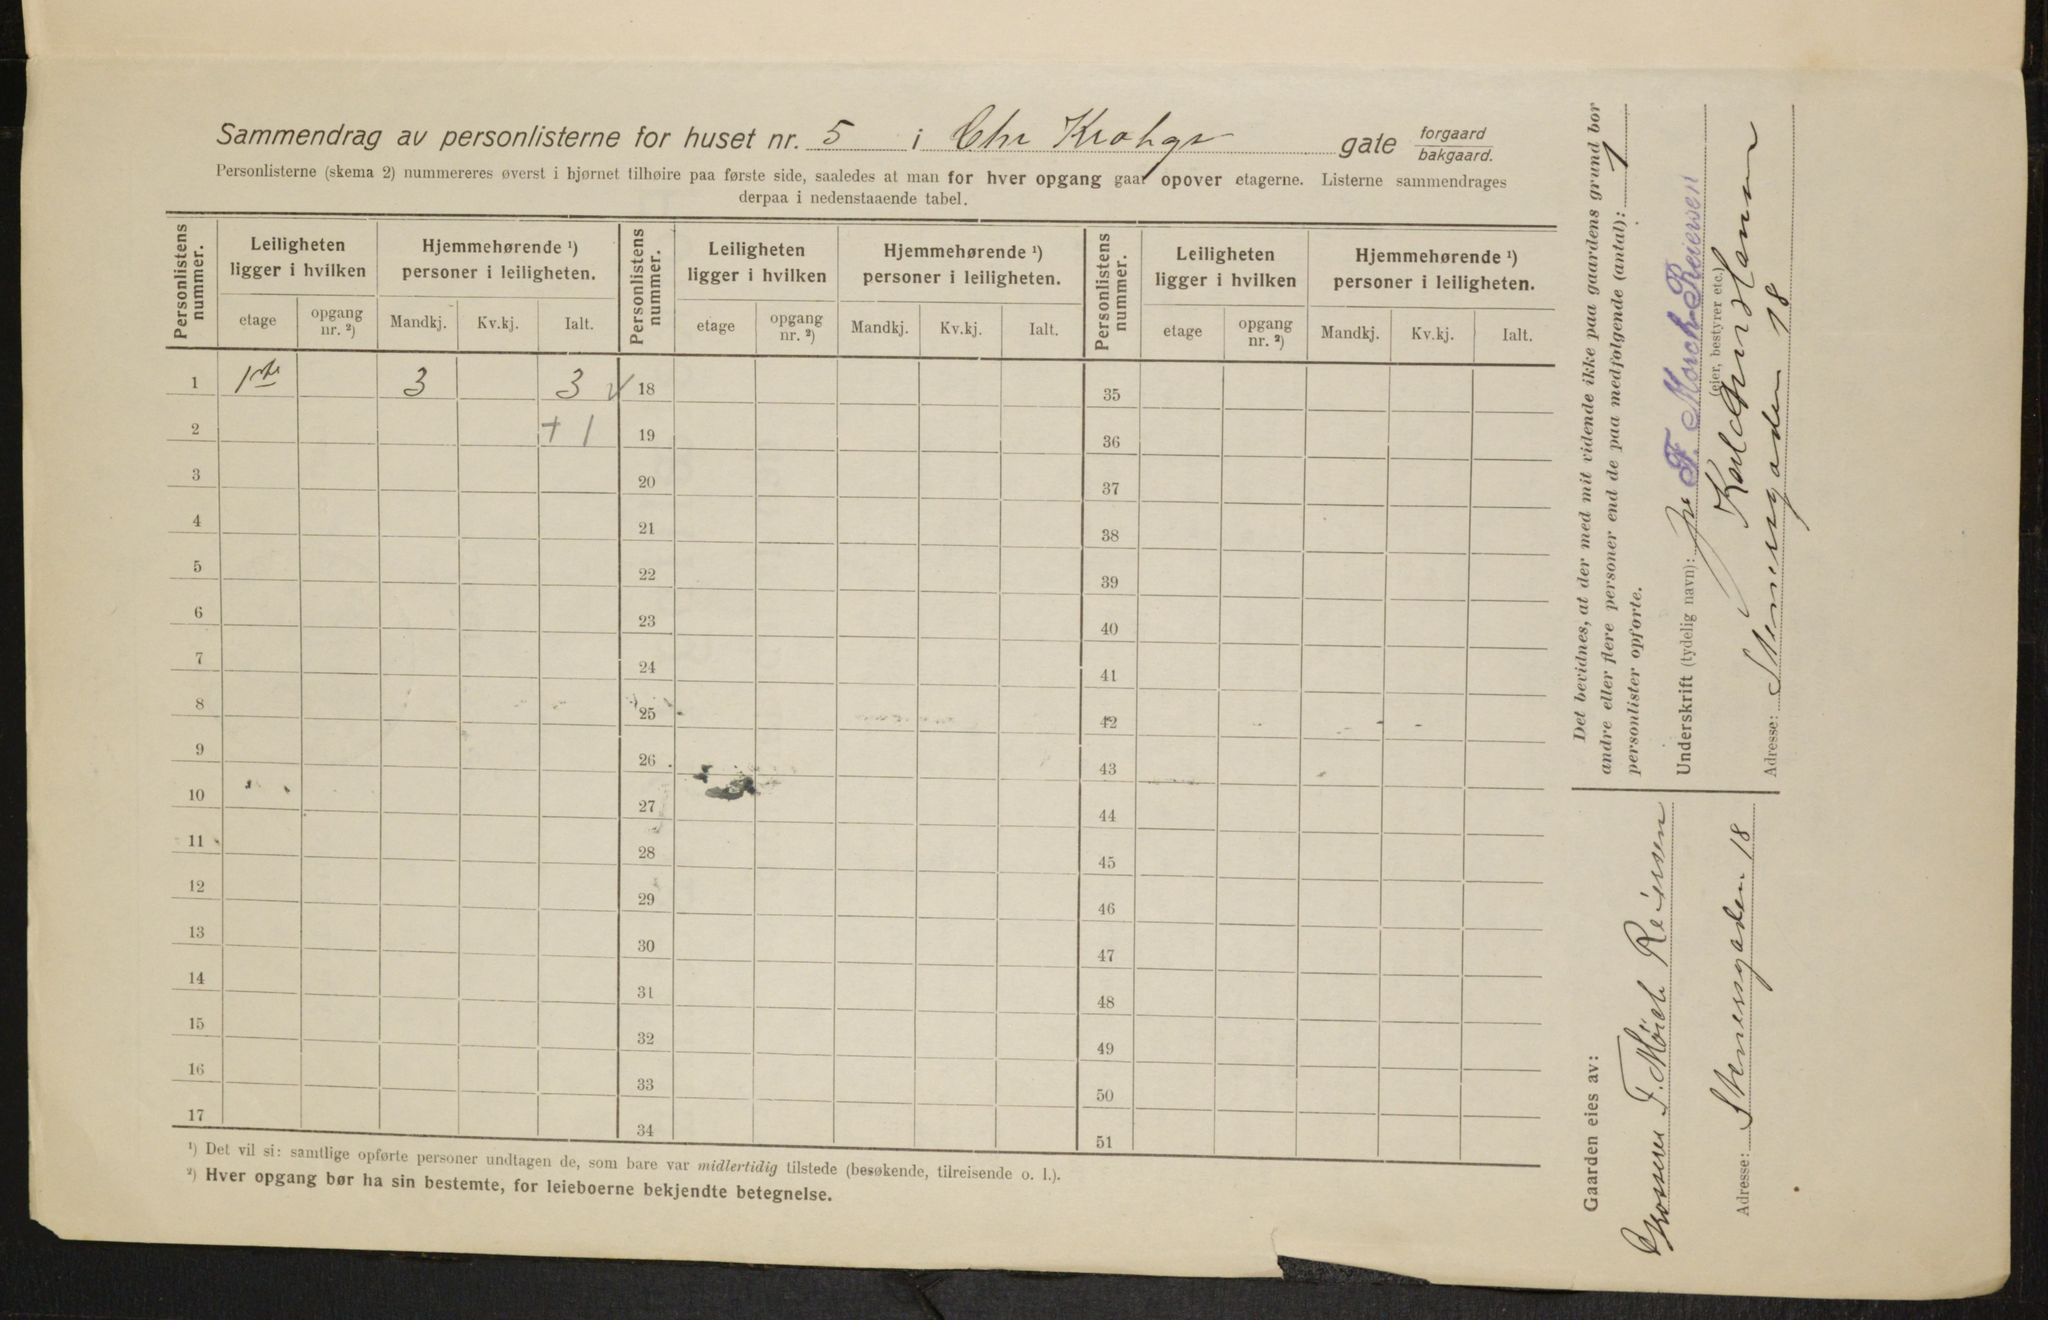 Sammendrag av personlisterne for huset nr. 5 i Chr Krohgs gate forgaard bakgaard.
Personlisterne (skema 2) nummereres øverst i hjørnet tilhøire paa første side, saaledes at man for hver opgang gaar opover etagerne. Listerne sammendrages
derpaa i nedenstaaende tabel.
Personlistens nummer. Leiligheten ligger i hvilken Hjemmehørende ¹) personer i leiligheten. Personlistens nummer. Leiligheten ligger i hvilken Hjemmehørende ¹) personer i leiligheten. Personlistens nummer. Leiligheten ligger i hvilken Hjemmehørende ¹) personer i leiligheten.
etage opgang nr. ²) Mandkj. Kv.kj. Ialt. etage opgang nr. ²) Mandkj. Kv.kj. Ialt. etage opgang nr. ²) Mandkj. Kv.kj. Ialt.
1 1ste 3 3 18 35
2 + 1 19 36
3 20 37
4 21 38
5 22 39
6 23 40
7 24 41
8 25 42
9 26 43
10 27 44
11 28 45
12 29 46
13 30 47
14 31 48
15 32 49
16 33 50
17 34 51
¹) Det vil si: samtlige opførte personer undtagen de, som bare var midlertidig tilstede (besøkende, tilreisende o. l.).
²) Hver opgang bør ha sin bestemte, for leieboerne bekjendte betegnelse.
Det bevidnes, at der med mit vidende ikke paa gaardens grund bor
andre eller flere personer end de paa medfølgende (antal): 1
personlister opførte.
Underskrift (tydelig navn): F. Mørch Reiersen
(eier, bestyrer etc.)
Adresse: Stenersgaden 18
Gaarden eies av:
F. Mörch Reiersen
Adresse: Stenersgaden 18